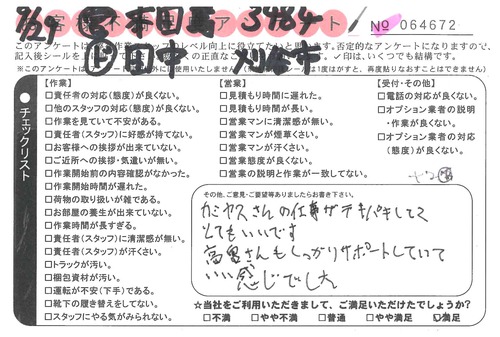 9/29 本田 3484
田中 刈谷市
No 064672
記入後シールを
✓印は、いくつでも結構です。
(シールは1度はがすと、再度貼りなおすことはできません)
チェックリスト
【作業】
□責任者の対応(態度)が良くない。
□他のスタッフの対応(態度)が良くない。
□作業を見ていて不安がある。
□責任者(スタッフ)に好感が持てない。
□お客様への挨拶が出来ていない。
□ご近所への挨拶・気遣いが無い。
□作業開始前の内容確認がなかった。
□作業開始時間が遅れた。
□荷物の取り扱いが雑である。
□お部屋の養生が出来ていない。
□作業時間が長すぎる。
□責任者(スタッフ)に清潔感が無い。
□責任者(スタッフ)が汗くさい。
□トラックが汚い。
□梱包資材が汚い。
□運転が不安(下手)である。
□靴下の履き替えをしてない。
□スタッフにやる気がみられない。
【営業】
□見積もり時間に遅れた。
□見積もり時間が長い。
□営業マンに清潔感が無い。
□営業マンが煙草くさい。
□営業マンが汗くさい。
□営業態度が良くない。
□営業の説明と作業が一致してない。
【受付・その他】
□電話の対応が良くない。
□オプション業者の説明
・作業が良くない。
□オプション業者の対応
(態度)が良くない。
その他、ご意見・ご要望等ありましたらお書き下さい。
カミヤスさんの仕事がテキパキしてて
とてもいいです
高島さんもしっかりサポートしていて
いい感じでした
☆当社をご利用いただきまして、ご満足いただけたでしょうか?
□不満 □やや不満 □普通 □やや満足 ☑満足